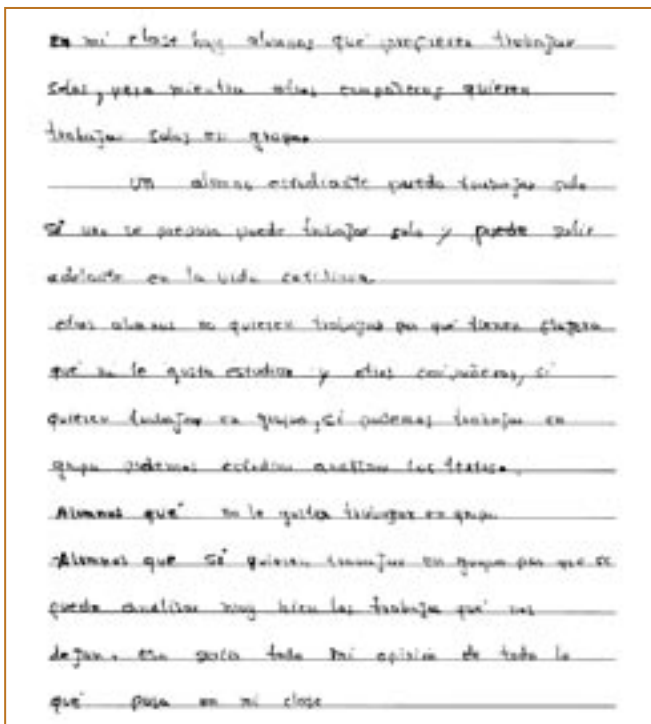 En mi clase hay alumnos que prefieren trabajar
solos, pero mientra otros compañeros quieren
trabajar solos en grupos
Un alumno estudiante puede trabajar solo
Sí uno se prepara puede trabajar solo y puede salir
adelante en la vida cotidiana.
otros alumnos no quieren trabajar por qué tienen flojera
qué no le gusta estudiar y otros compañeros, sí
quieren trabajar en grupo, sí podemos trabajar en
grupo podemos estudiar analizar los
Alumnos qué no le gusta trabajar en grupo
-Alumnos que sí quieren trabajar en grupo por que se
puede analizar muy bien los trabajos qué nos
dejan. eso sería todo mi opinión de todo lo
qué pasa en mi clase